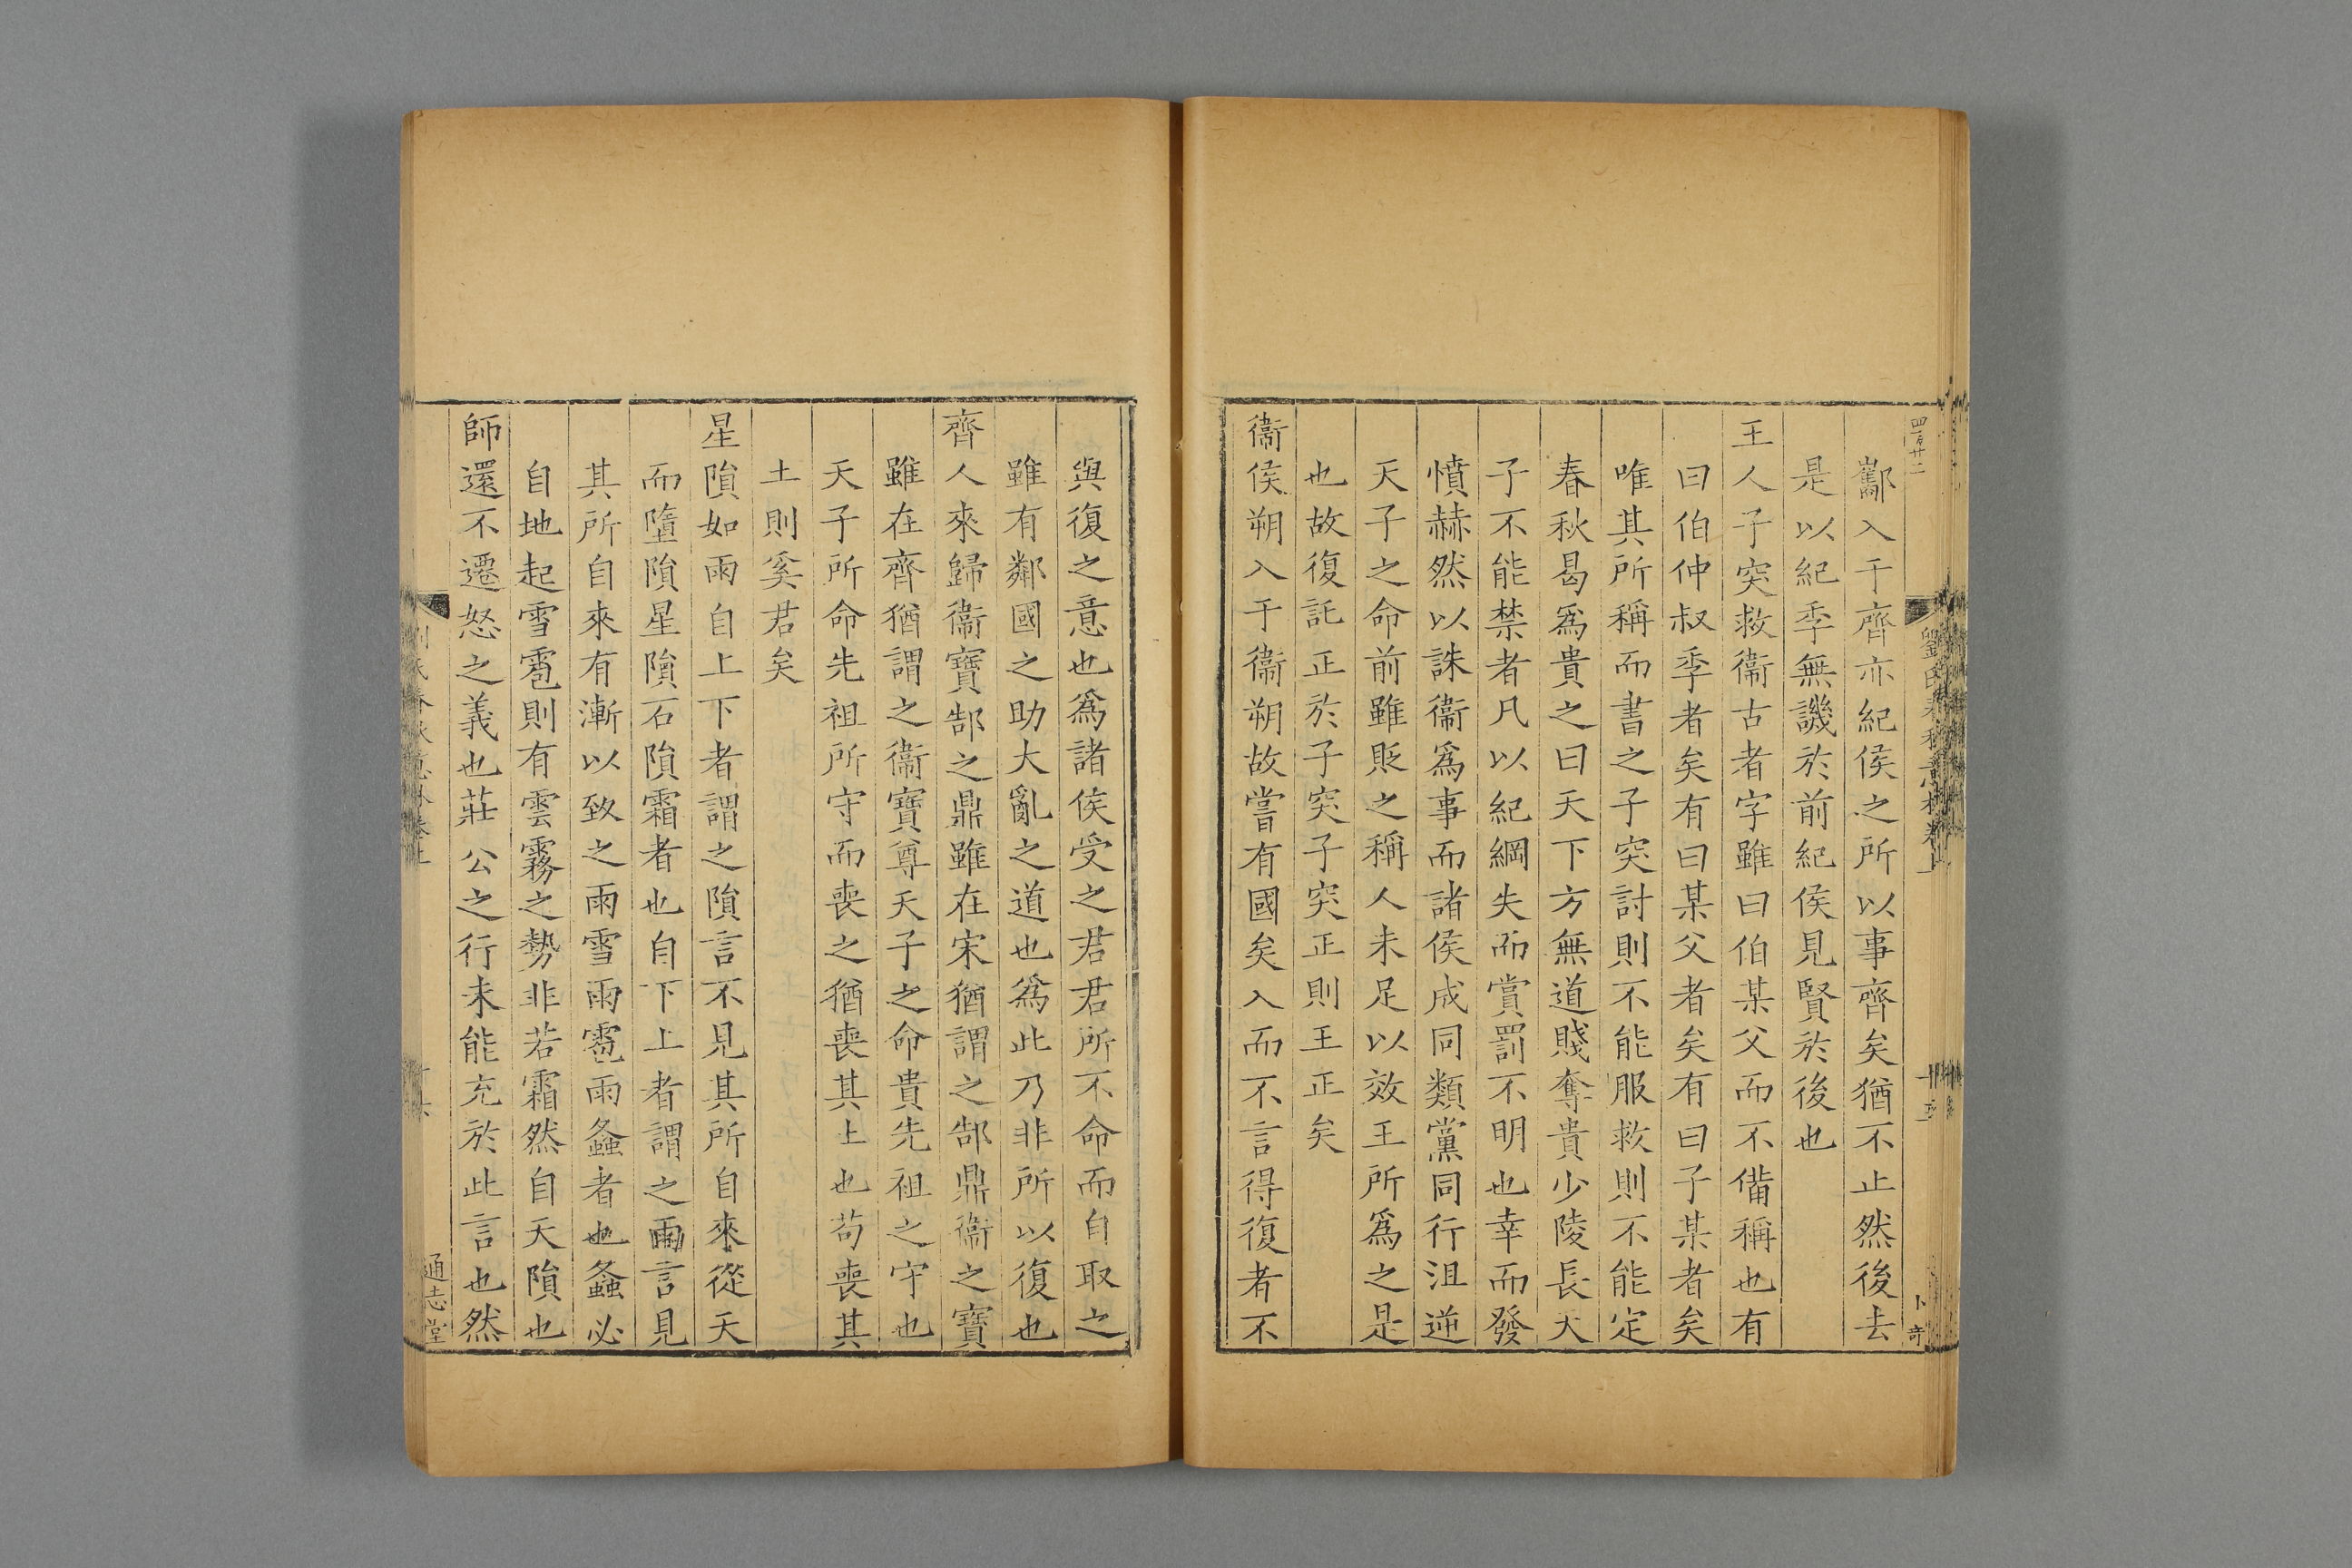 四百廿二
酅入于齊亦紀侯之所以事齊矣猶不止然後去
是以紀季無譏於前紀侯見賢於後也
王人子突救衞古者字雖曰伯某父而不備稱也有
曰伯仲叔季者矣有曰某父者矣有曰子某者矣
唯其所稱而書之子突討則不能服救則不能定
春秋曷爲貴之曰天下方無道賤奪貴少陵長天
子不能禁者凡以紀綱失而賞罰不明也幸而發
憤赫然以誅衞爲事而諸侯成同類黨同行沮逆
天子之命前雖貶之稱人未足以效王所爲之是
也故復託正於子突子突正則王正矣
衞侯朔入于衞朔故嘗有國矣入而不言得復者不
劉氏春秋意林卷上
十五
卜奇
與復之意也爲諸侯受之君君所不命而自取之
雖有鄰國之助大亂之道也爲此乃非所以復也
齊人來歸衞寶郜之鼎雖在宋猶謂之郜鼎衞之寶
雖在齊猶謂之衞寶尊天子之命貴先祖之守也
天子所命先祖所守而喪之猶喪其上也苟喪其
土則奚君矣
星隕如雨自上下者謂之隕言不見其所自來從天
而墮隕星隕石隕霜者也自下上者謂之雨言見
其所自來有漸以致之雨雪雨雹雨螽者也螽必
自地起雪雹則有雲霧之勢非若霜然自天隕也
師還不遷怒之義也莊公之行未能充於此言也然
劉氏春秋意林卷上
通志堂